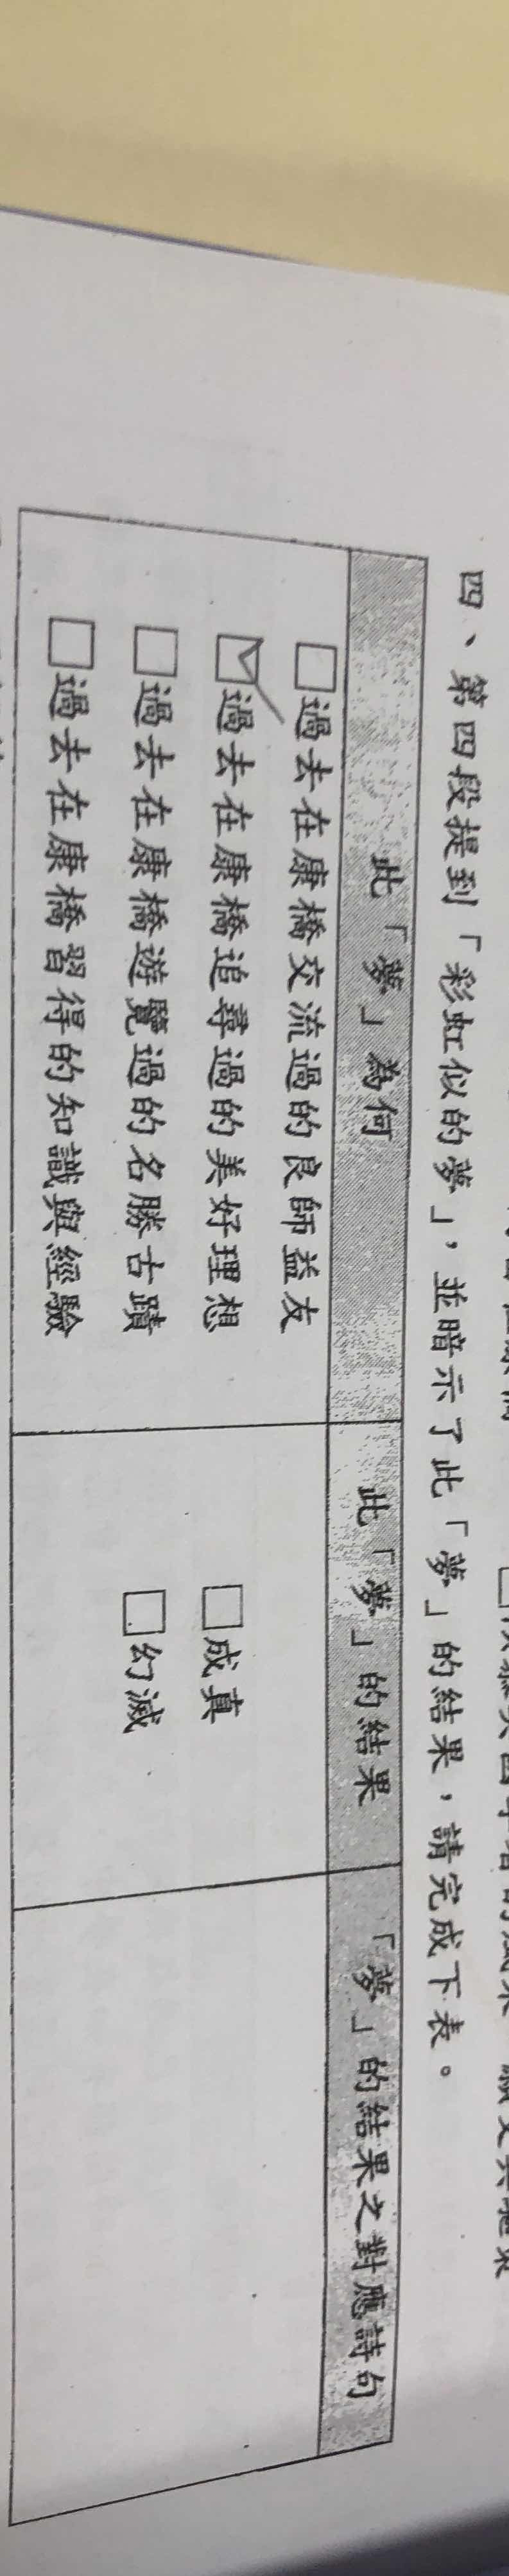 四、第四段提到「彩虹似的夢」，並暗示了此「夢」的結果，請完成下表。
此「夢」為何
此「夢」的結果
「夢」的結果之對應詩句
□過去在康橋交流過的良師益友
☑過去在康橋追尋過的美好理想
□過去在康橋遊覽過的名勝古蹟
□過去在康橋習得的知識與經驗
□成真
□幻滅